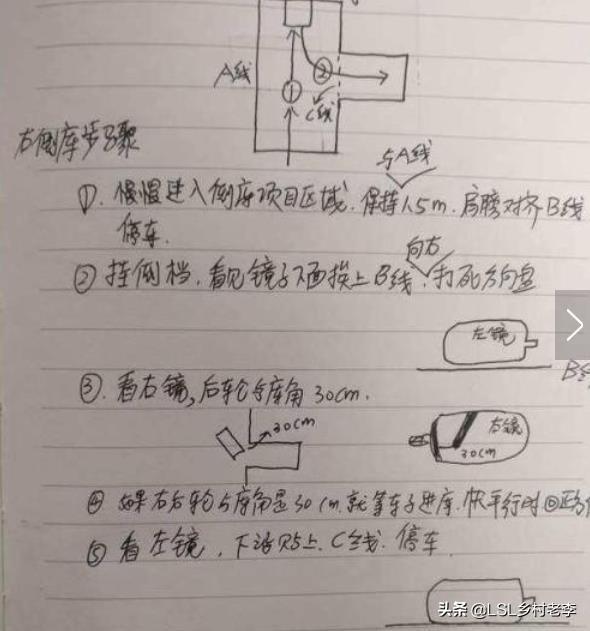 A线
①
②
C线
右倒库步骤
与A线
①. 慢慢进入倒库项目区域. 保持1.5m. 肩膀对齐B线
停车.
向右
② 挂倒档. 看见镜子下面挨上B线. 打死方向盘
左镜
B线
③. 看右镜, 后轮与库角30cm.
30cm
右镜
30cm
④ 如果右后轮与库角是30cm. 就等车子进库. 快平行时回正方
⑤ 看左镜, 下沿 上C线. 停车.
头条 @LSL乡村老李